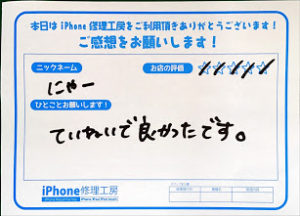 本日は iPhone 修理工房をご利用頂きありがとうございます!
ご感想をお願いします!
ニックネーム
お店の評価
☆☆☆☆☆
にゃー
ひとことお願いします!
ていねいで良かったです。
iPhone修理工房